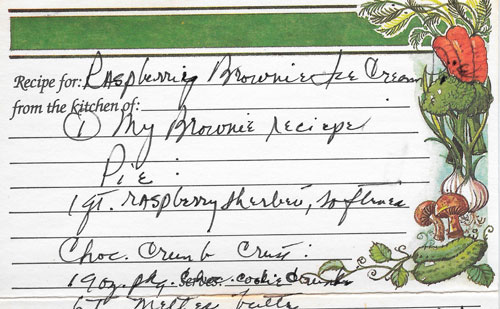 Recipe for: Raspberry Brownie Ice Cream
from the kitchen of:
① My Brownie reciepe
Pie:
1 qt. Raspberry Sherbet, softened
Choc. Crumb Crust:
1 9oz. pkg. Choc. cookie crumbs
Serves:
6T melted butte